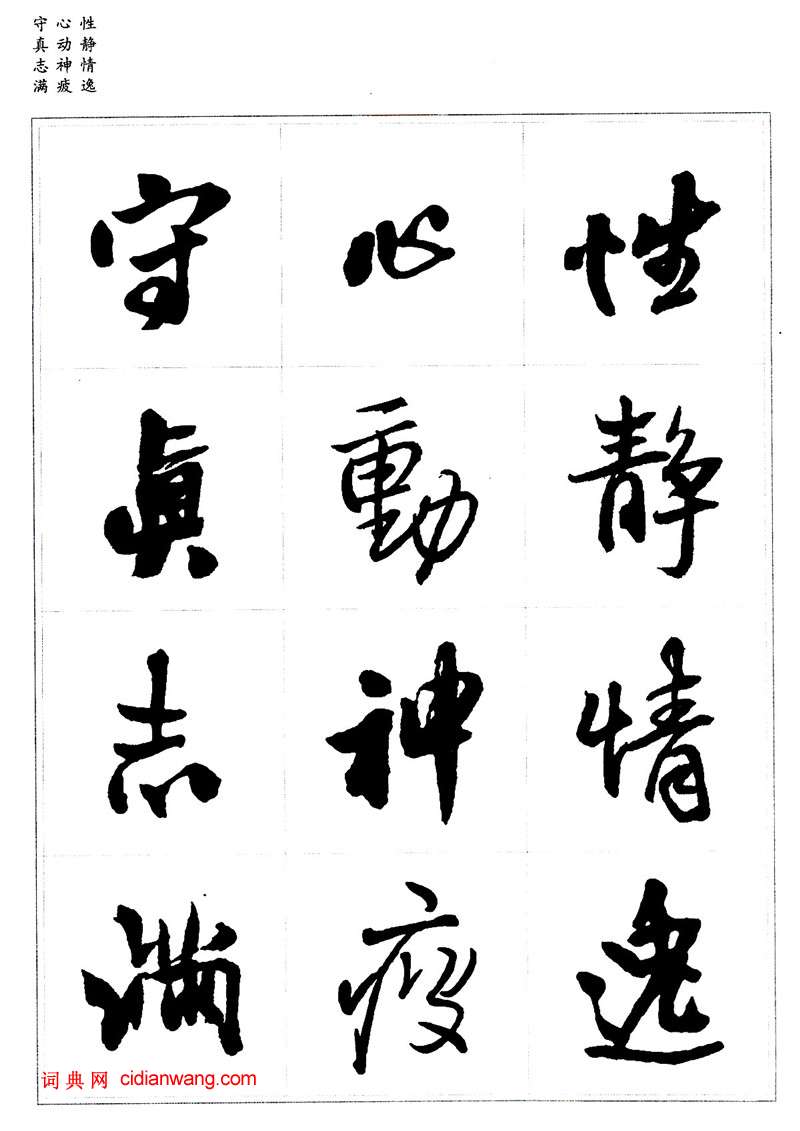 性静情逸
心动神疲
守真志满
性靜情逸
心動神疲
守眞志滿
词典网 cidianwang.com